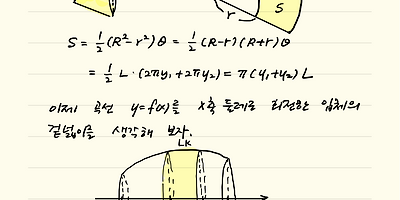 r
S
S = 1/2 (R² - r²)θ = 1/2 (R-r)(R+r)θ
= 1/2 L · (2πy₁ + 2πy₂) = π(y₁+y₂) L
이제 곡선 y=f(x)를 x축 둘레로 회전한 입체의
겉넓이를 생각해 보자.
LK